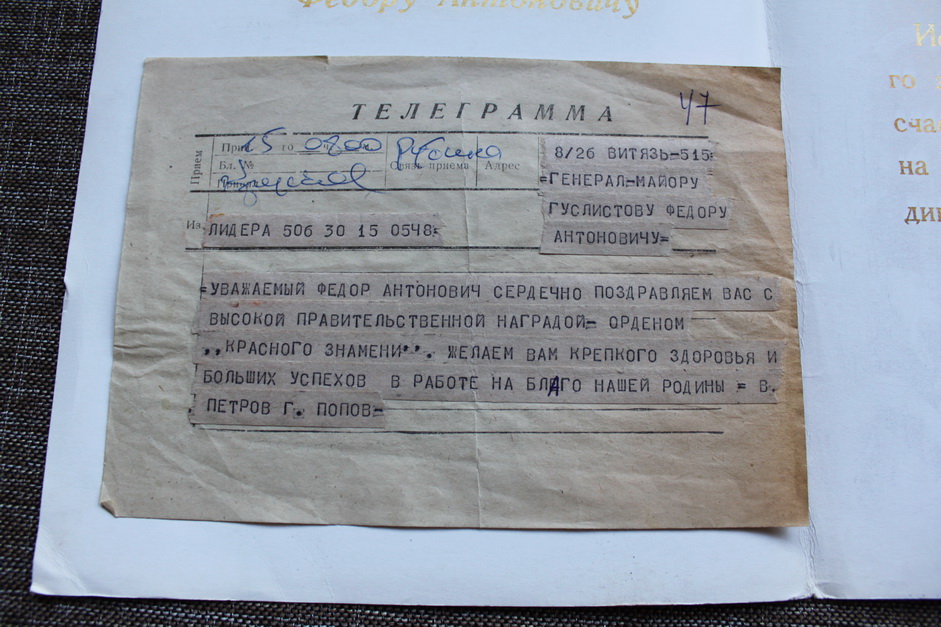 Федору Антоновичу
ТЕЛЕГРАММА
47
Прием
15 го 0800
Бл. №
Связь приема
Адрес
8/26 ВИТЯЗЬ-515=
=ГЕНЕРАЛ-МАЙОРУ
ГУСЛИСТОВУ ФЕДОРУ
АНТОНОВИЧУ=
Из
ЛИДЕРА 506 30 15 0548=
=УВАЖАЕМЫЙ ФЕДОР АНТОНОВИЧ СЕРДЕЧНО ПОЗДРАВЛЯЕМ ВАС С
ВЫСОКОЙ ПРАВИТЕЛЬСТВЕННОЙ НАГРАДОЙ- ОРДЕНОМ
,,КРАСНОГО ЗНАМЕНИ''. ЖЕЛАЕМ ВАМ КРЕПКОГО ЗДОРОВЬЯ И
БОЛЬШИХ УСПЕХОВ В РАБОТЕ НА БЛАГО НАШЕЙ РОДИНЫ = В.
ПЕТРОВ Г. ПОПОВ-
го
сча
на
ди